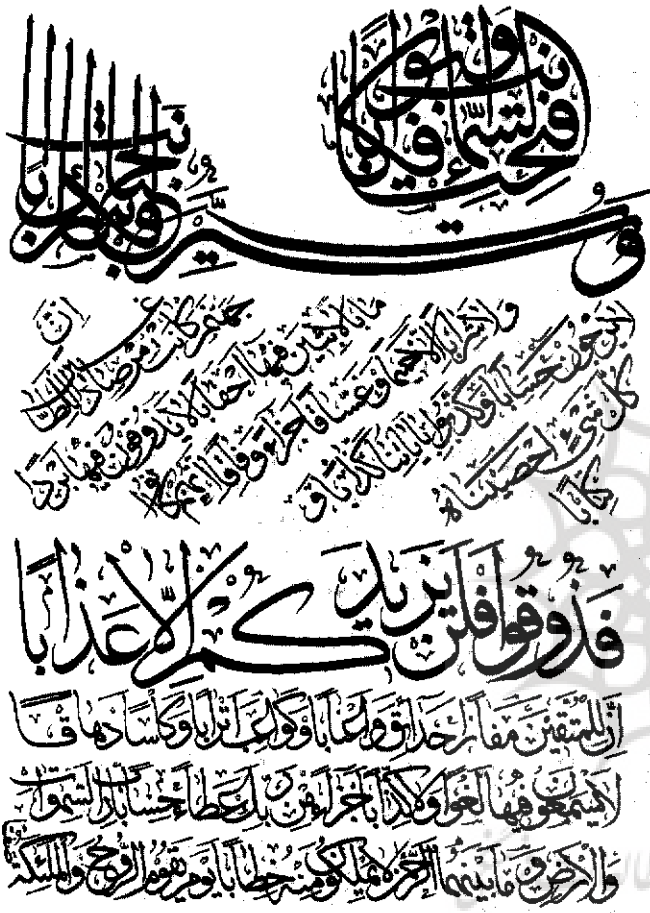 وَفُتِحَتِ السَّمَاءُ فَكَانَتْ أَبْوَابًا
وَسُيِّرَتِ الْجِبَالُ فَكَانَتْ سَرَابًا
إِنَّ
جَهَنَّمَ كَانَتْ مِرْصَادًا لِلطَّاغِينَ
مَآبًا لَابِثِينَ فِيهَا أَحْقَابًا لَا يَذُوقُونَ فِيهَا بَرْدًا
وَلَا شَرَابًا إِلَّا حَمِيمًا وَغَسَّاقًا جَزَاءً وِفَاقًا إِنَّهُمْ كَانُوا
لَا يَرْجُونَ حِسَابًا وَكَذَّبُوا بِآيَاتِنَا كِذَّابًا وَ
كُلَّ شَيْءٍ أَحْصَيْنَاهُ
كِتَابًا
فَذُوقُوا فَلَنْ نَزِيدَكُمْ إِلَّا عَذَابًا
إِنَّ لِلْمُتَّقِينَ مَفَازًا حَدَائِقَ وَأَعْنَابًا وَكَوَاعِبَ أَتْرَابًا وَكَأْسًا دِهَاقًا
لَا يَسْمَعُونَ فِيهَا لَغْوًا وَلَا كِذَّابًا جَزَاءً مِنْ رَبِّكَ عَطَاءً حِسَابًا رَبِّ السَّمٰوَاتِ
وَالْأَرْضِ وَمَا بَيْنَهُمَا الرَّحْمٰنِ لَا يَمْلِكُونَ مِنْهُ خِطَابًا يَوْمَ يَقُومُ الرُّوحُ وَالْمَلٰئِكَةُ